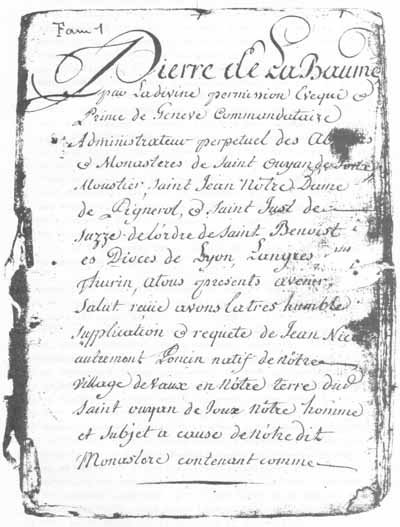 Fam 1
Pierre de La Baume
par La divine permission Evèque &
Prince de Geneve Commandataire
Administrateur perpetuel des
& Monasteres de Saint ouyan de
Moustier, Saint Jean Nôtre Dame
de Pignerol, & Saint Just de
Suzze de l'ordre de Saint Benoist
es Dioces de Lyon, Langres
Thurin, atous presents avenir,
Salut reçüe avons latres humble
Supplication & requete de Jean
autrement Poncin natif de nôtre
village de Vaux en Nôtre terre dud
Saint ouyan de Joux Nôtre homme
et Subjet a cause de Nôtre dit
Monastere contenant comme